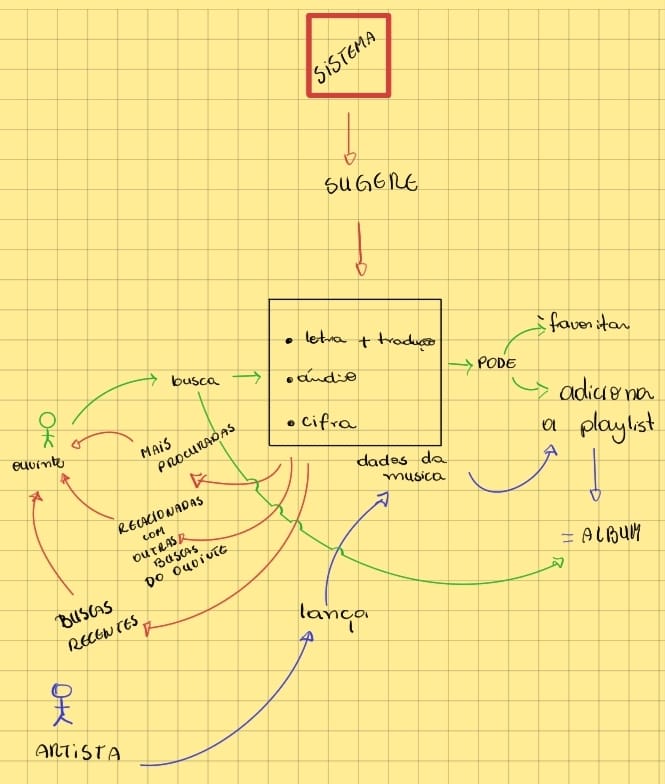 SISTEMA
SUGERE
• letra + tradução
• áudio
• cifra
dados da
musica
PODE
favoritar
adiciona
a playlist
= ALBUM
busca
ouvinte
MAIS
PROCURADAS
RELACIONADAS
COM
OUTRAS
BUSCAS
DO OUVINTE
BUSCAS
RECENTES
lança
ARTISTA